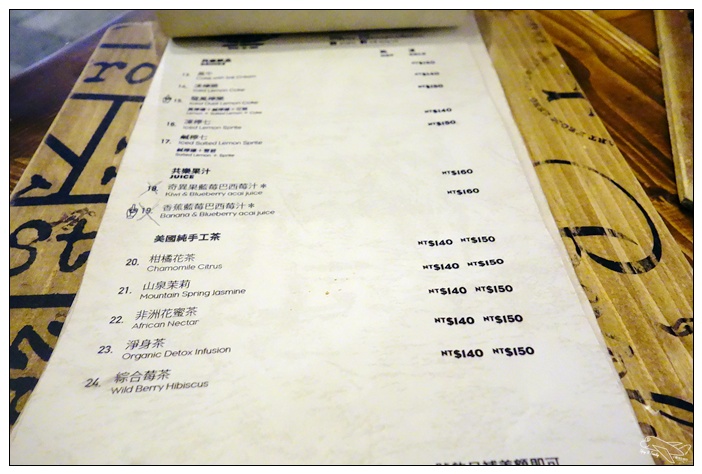 ro
NT$150
13.
Cola with Ice Cream
NT$140
14.
Iced Lemon Coke
NT$150
15.
Iced Dual Lemon Coke
16. 凍檸七
Iced Lemon Sprite
NT$140
17. 鹹檸七
Iced Salted Lemon Sprite
NT$150
Salted Lemon + Sprite
共樂果汁
JUICE
18. 奇異果藍莓巴西莓汁*
Kiwi & Blueberry acai juice
NT$160
19. 香蕉藍莓巴西莓汁*
Banana & Blueberry acai juice
NT$160
美國純手工茶
20. 柑橘花茶
Chamomile Citrus
NT$140 NT$150
21. 山泉茉莉
Mountain Spring Jasmine
NT$140 NT$150
22. 非洲花蜜茶
African Nectar
NT$140 NT$150
23. 淨身茶
Organic Detox Infusion
NT$140 NT$150
24. 綜合莓茶
Wild Berry Hibiscus
NT$140 NT$150